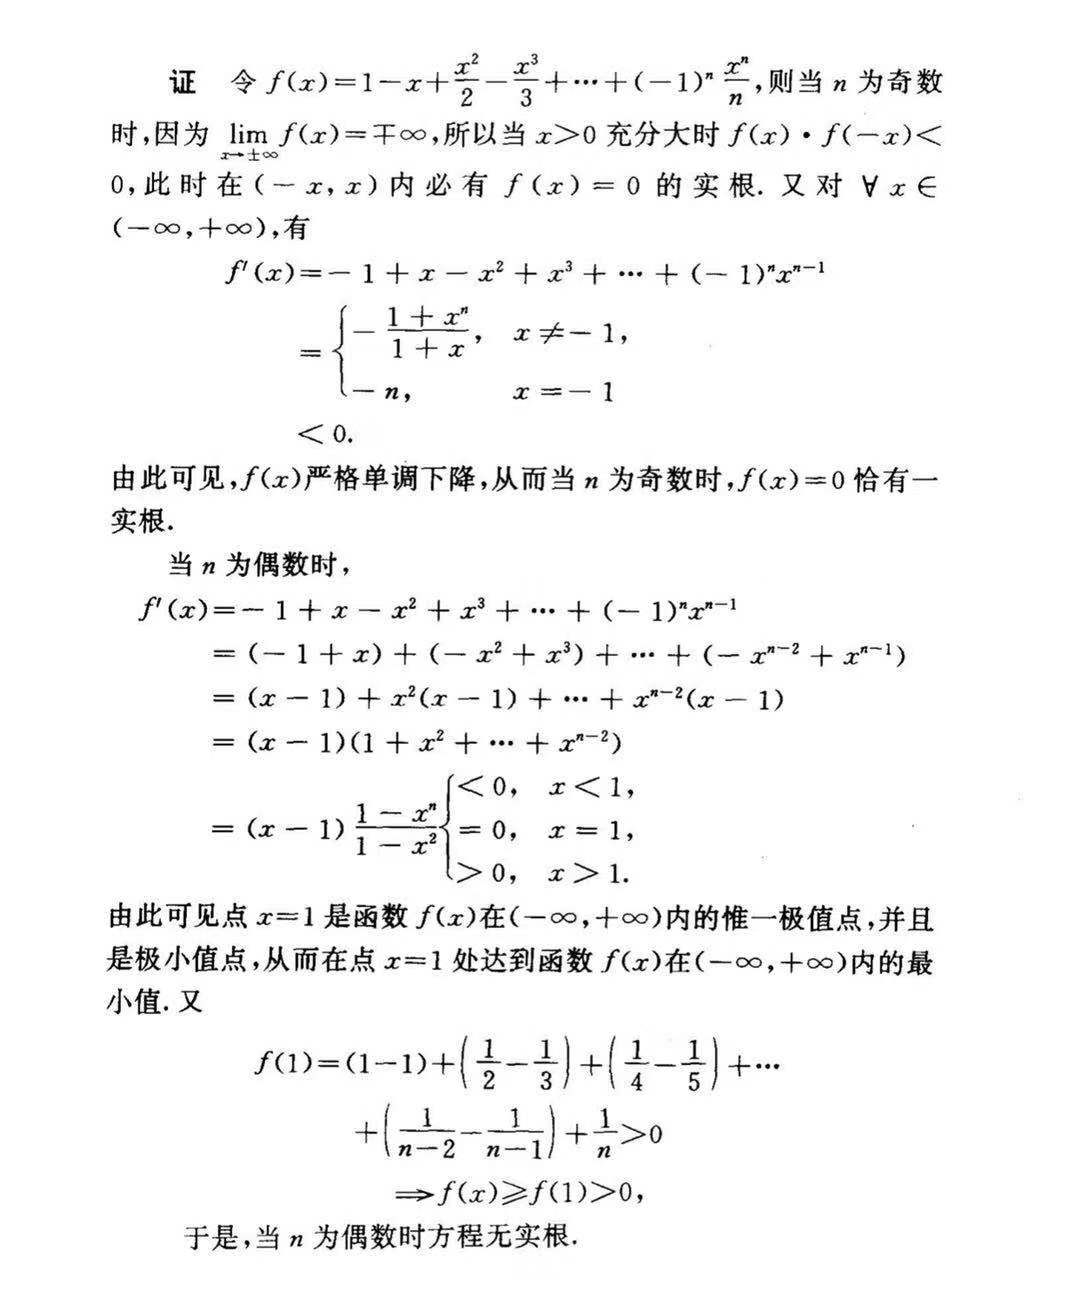 证 令 f(x)=1-x+\frac{x^2}{2}-\frac{x^3}{3}+⋯+(-1)^n\frac{x^n}{n},则当 n 为奇数
时,因为 \lim_{x→±∞} f(x)=∓∞,所以当 x>0 充分大时 f(x)·f(-x)<
0,此时在(-x,x)内必有 f(x)=0 的实根. 又对 ∀x∈
(-∞,+∞),有
f'(x)=-1+x-x^2+x^3+⋯+(-1)^n x^{n-1}
=\begin{cases}-\frac{1+x^n}{1+x}, & x≠-1,\\ -n, & x=-1\end{cases}
<0.
由此可见,f(x)严格单调下降,从而当 n 为奇数时,f(x)=0 恰有一
实根.
当 n 为偶数时,
f'(x)=-1+x-x^2+x^3+⋯+(-1)^n x^{n-1}
=(-1+x)+(-x^2+x^3)+⋯+(-x^{n-2}+x^{n-1})
=(x-1)+x^2(x-1)+⋯+x^{n-2}(x-1)
=(x-1)(1+x^2+⋯+x^{n-2})
=(x-1)\frac{1-x^n}{1-x^2}\begin{cases}<0, & x<1,\\ =0, & x=1,\\ >0, & x>1.\end{cases}
由此可见点 x=1 是函数 f(x)在(-∞,+∞)内的惟一极值点,并且
是极小值点,从而在点 x=1 处达到函数 f(x)在(-∞,+∞)内的最
小值. 又
f(1)=(1-1)+\left(\frac{1}{2}-\frac{1}{3}\right)+\left(\frac{1}{4}-\frac{1}{5}\right)+⋯
+\left(\frac{1}{n-2}-\frac{1}{n-1}\right)+\frac{1}{n}>0
⟹f(x)≥f(1)>0,
于是,当 n 为偶数时方程无实根.